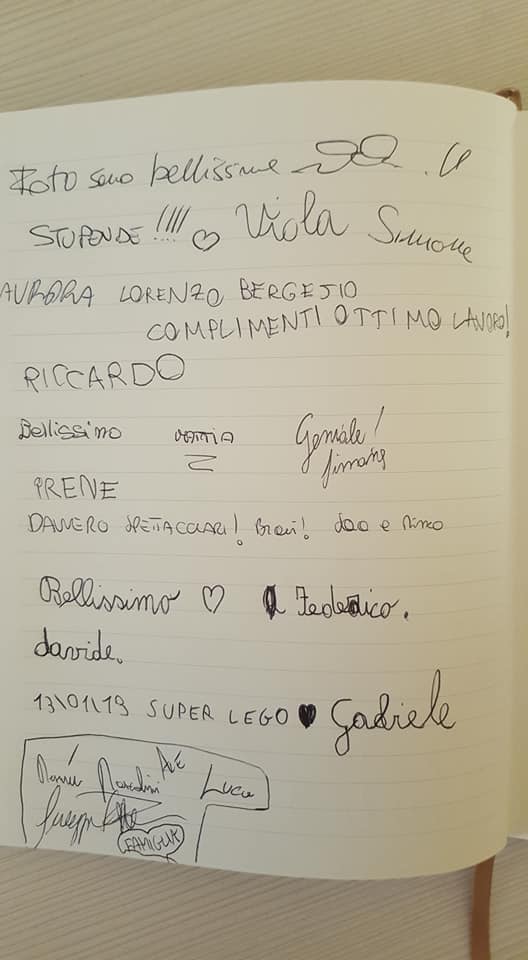 Foto sono bellissime
STUPENDE !!!! ♡ Viola Simone
AURORA LORENZO BERGESIO
COMPLIMENTI OTTIMO LAVORO!
RICCARDO
Bellissimo MATTIA Geniale!
Simone
IRENE
DAVVERO SPETTACOLARI! Bravi!
Bellissimo ♡ Federico.
davide.
13\01\19 SUPER LEGO ♥ Gabriele
AVE
Luca
FAMIGLIA